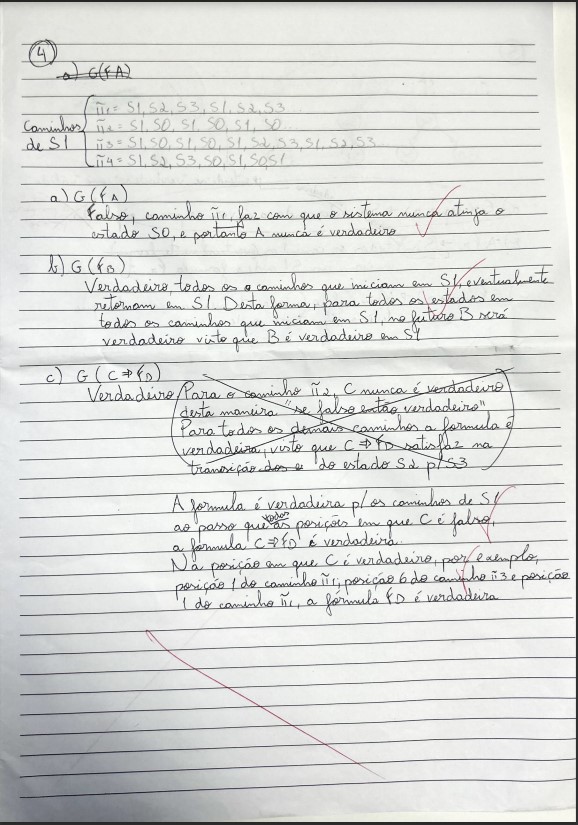 4
a) G(FA)
Caminhos de S1
π̃1 = S1, S2, S3, S1, S2, S3
π̃2 = S1, S0, S1, S0, S1, S0
π̃3 = S1, S0, S1, S0, S1, S2, S3, S1, S2, S3
π̃4 = S1, S2, S3, S0, S1, S0, S1
a) G(FA)
Falso, caminho π̃1, faz com que o sistema nunca atinja o
estado S0, e portanto A nunca é verdadeiro
b) G(FB)
Verdadeiro, todos os caminhos que iniciam em S1, eventualmente
retornam em S1. Desta forma, para todos os estados em
todos os caminhos que iniciam em S1, no futuro B será
verdadeiro visto que B é verdadeiro em S1
c) G(C⇒FD)
Verdadeiro Para o caminho π̃2, C nunca é verdadeiro
desta maneira "se falso então verdadeiro"
Para todos os demais caminhos a formula é
verdadeira, visto que C⇒FD satisfaz na
transição dos do estado S2 p/ S3
A formula é verdadeira p/ os caminhos de S1
ao passo que todas as posições em que C é falso,
a formula C⇒FD é verdadeira.
Na posição em que C é verdadeiro, por exemplo,
posição 1 do caminho π̃1, posição 6 do caminho π̃3 e posição
1 do caminho π̃1, a fórmula FD é verdadeira